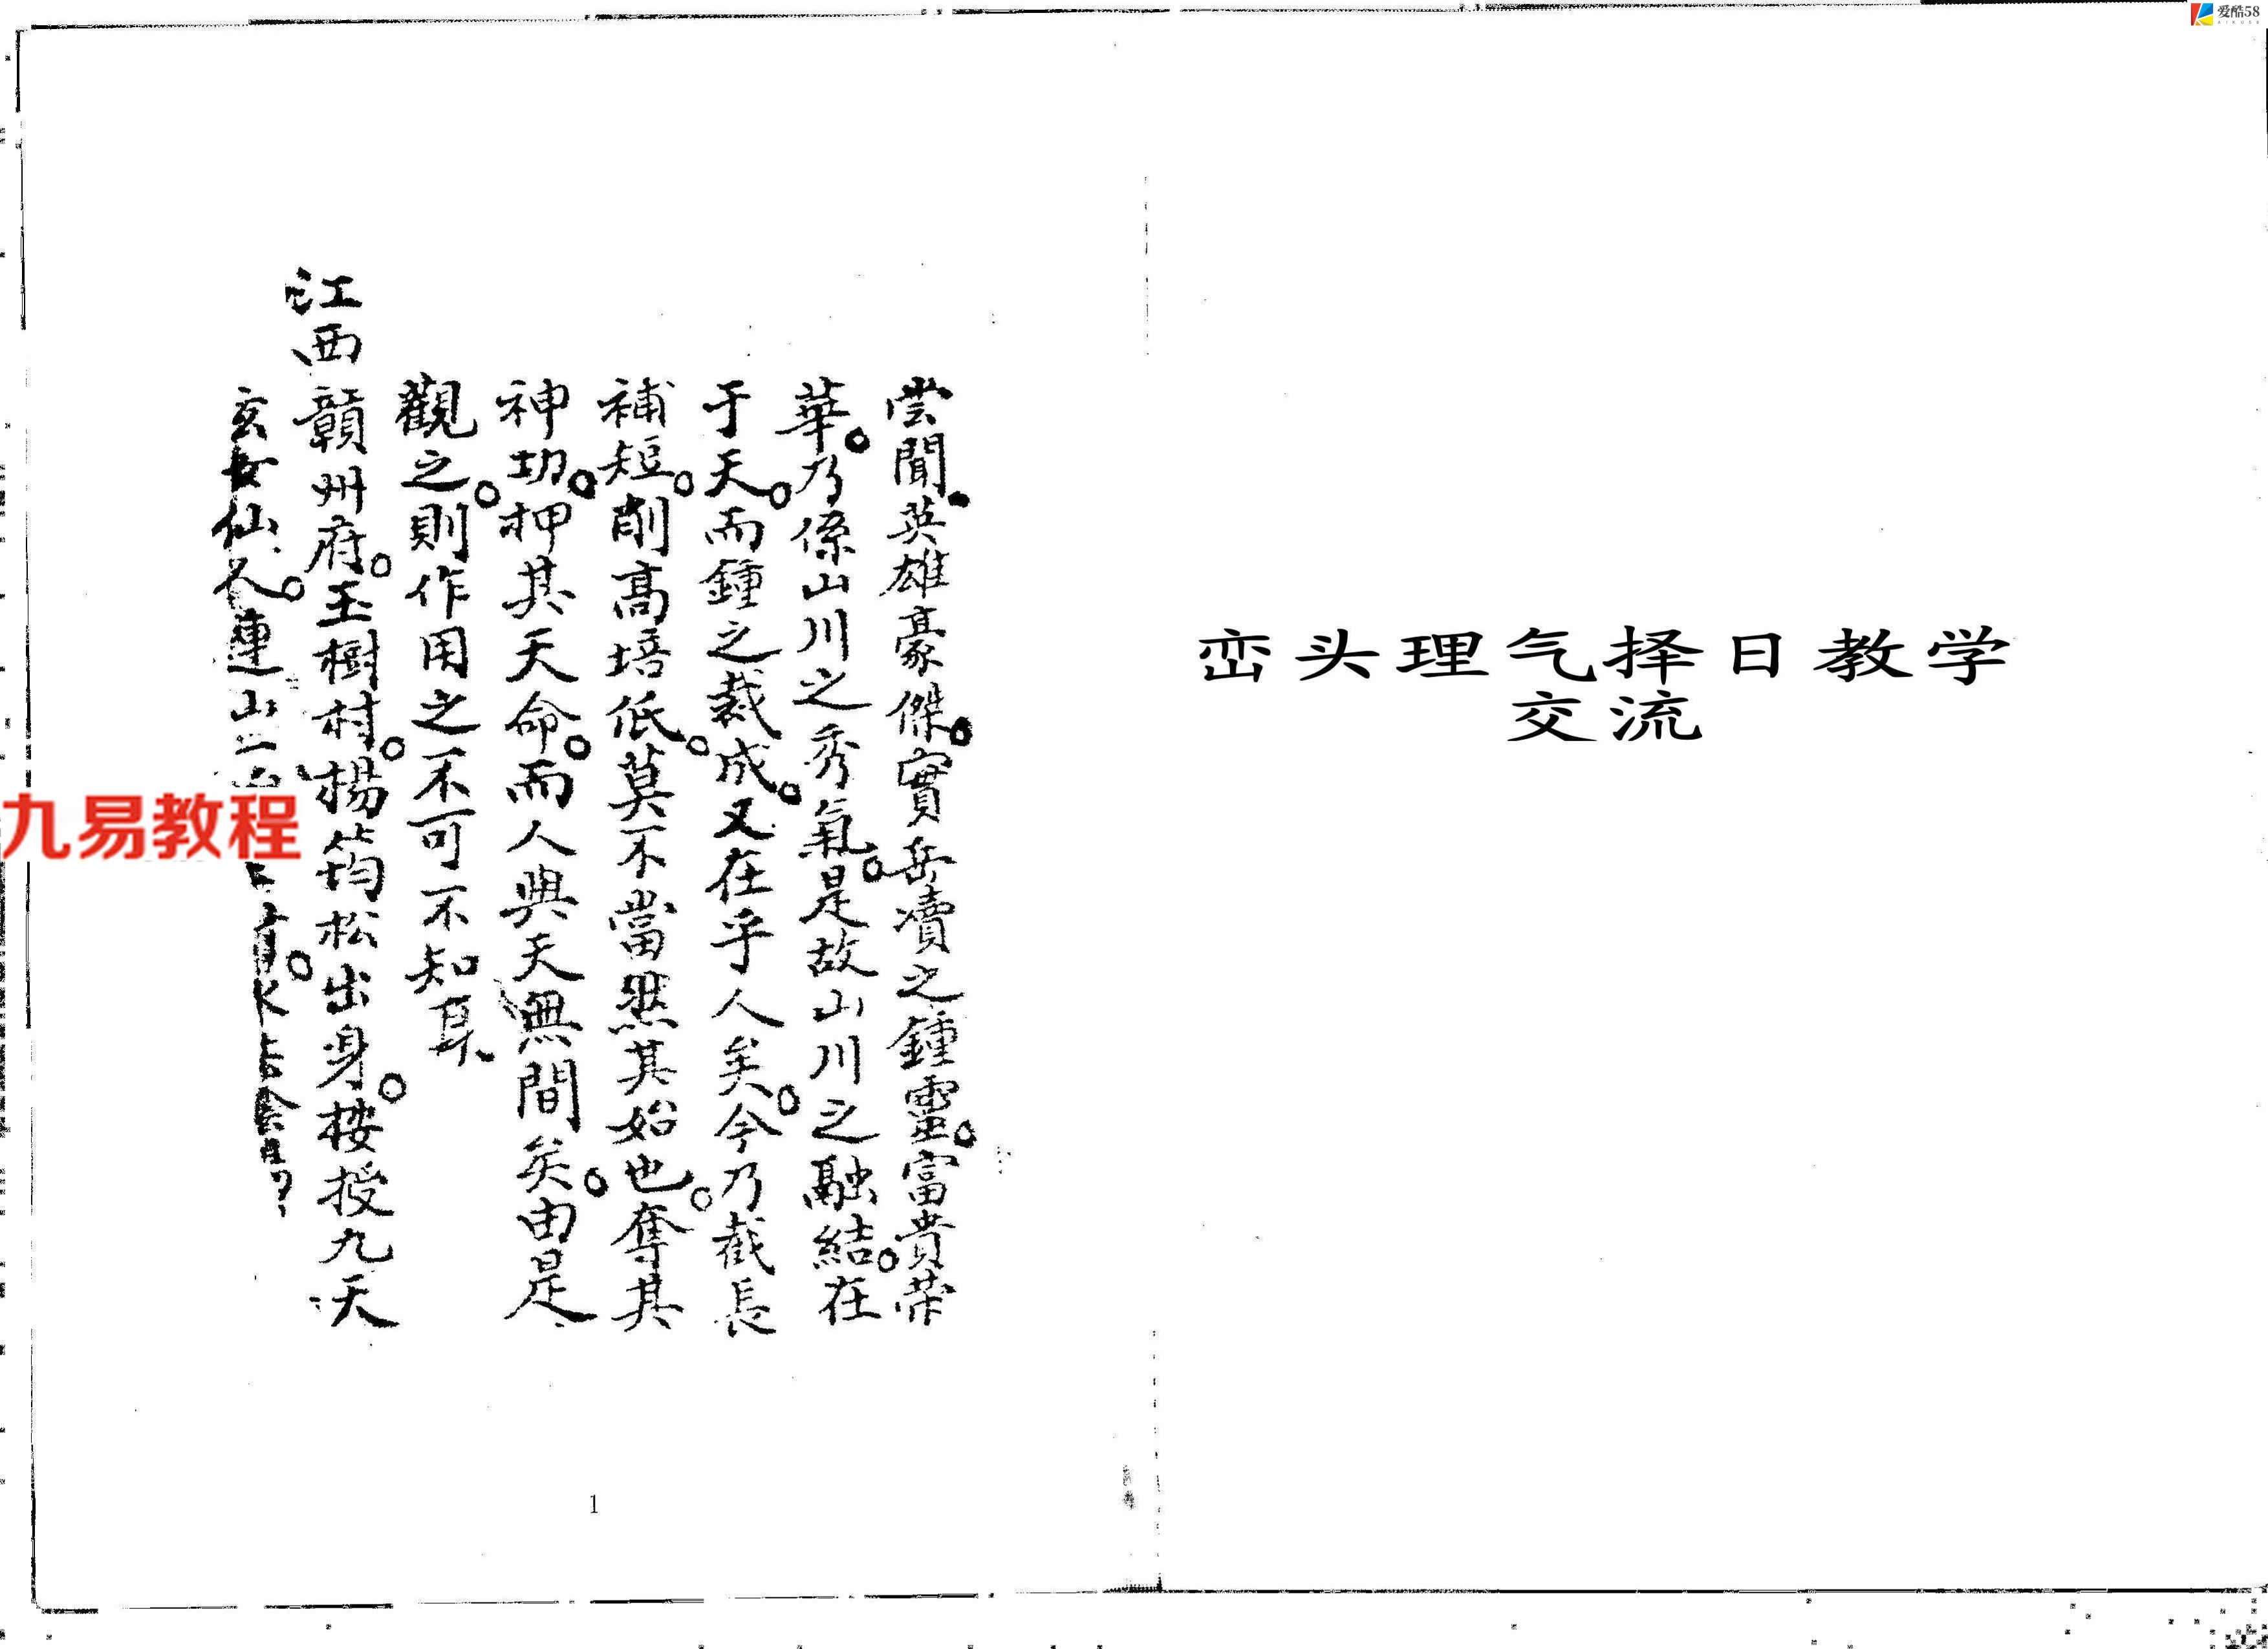 爱酷58
峦头理气择日教学
交流
尝聞英雄豪傑實岳瀆之鍾靈富貴荣
華乃係山川之秀氣是故山川之融結在
于天而鍾之裁成又在乎人矣今乃截長
補短削高培低莫不當然其始也奪其
神功押其天命而人與天無間矣由是
觀之則作用之不可不知耳
江西贛州府玉樹村楊筠松出身接授九天
玄女仙人連山二
九易教程
1